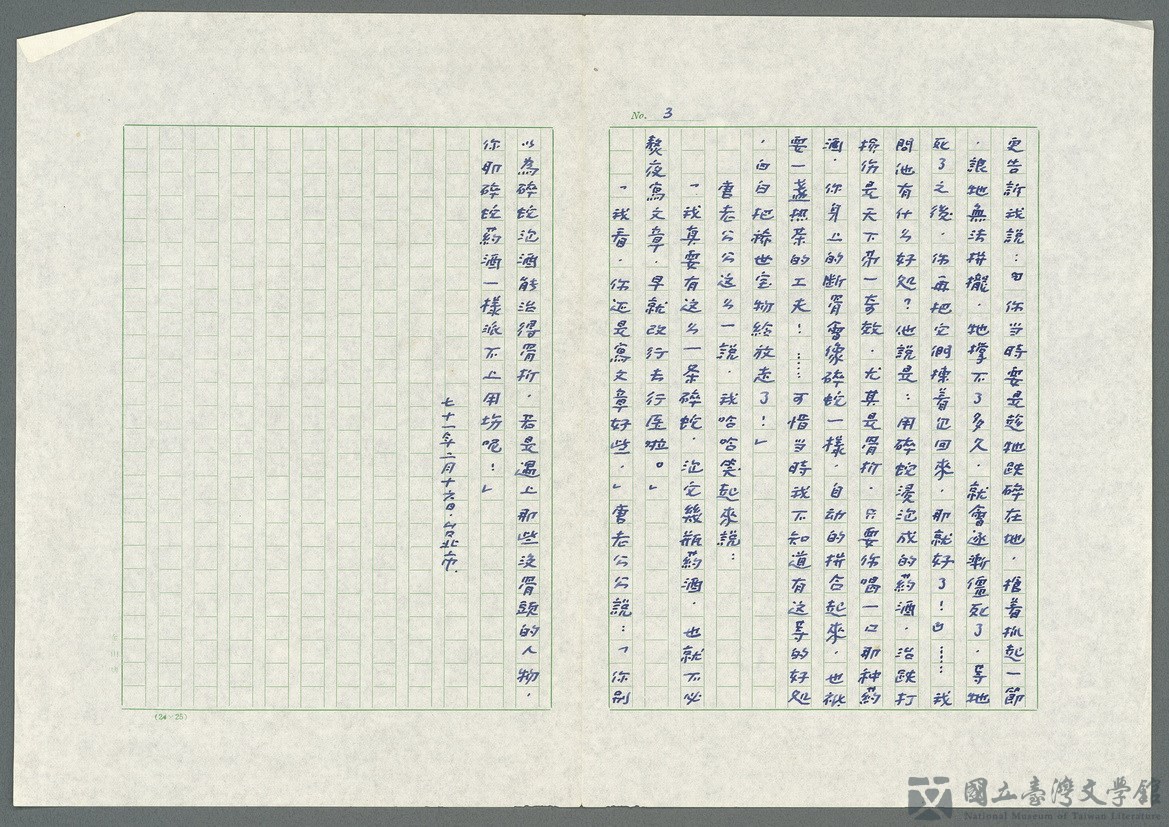 No. 3
更告訴我說：『你当時要是趁牠跌碎在地，搶着抓起一節
，讓牠無法拼攏，牠撑不了多久，就會逐漸僵死了，等牠
死了之後，你再把它們揀着包回來，那就好了！』……我
問他有什么好処？他說是：用碎蛇浸泡成的葯酒，治跌打
損伤是天下第一奇效，尤其是骨折，只要你喝一口那种葯
酒，你身上的断骨會像碎蛇一樣，自动的拼合起來，也祇
要一盞热茶的工夫！……可惜当時我不知道有这等的好処
，白白把稀世宝物給放走了！」
唐老公公这么一說，我哈哈笑起來說：
「我真要有这么一条碎蛇，泡它幾瓶葯酒，也就不必
熬夜寫文章，早就改行去行医啦。」
「我看，你还是寫文章好些，」唐老公公說：「你別
以為碎蛇泡酒能治得骨折，若是遇上那些沒骨頭的人物，
你那碎蛇葯酒一樣派不上用埸呢！」
七十一年二月十六日，台北市，
(24×25)
國立臺灣文學館
National Museum of Taiwan Literature